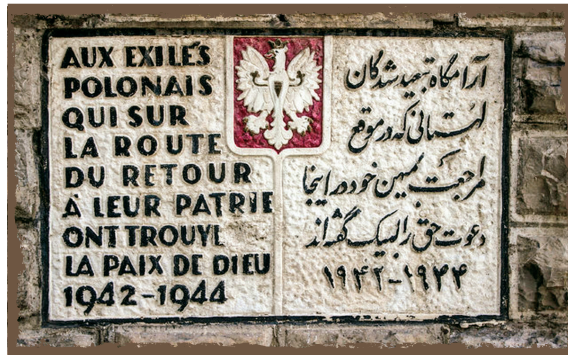 AUX EXILÉS
POLONAIS
QUI SUR
LA ROUTE
DU RETOUR
À LEUR PATRIE
ONT TROUVE
LA PAIX DE DIEU
1942-1944
آرامگاه تبعید شدگان
لهستانی که در موقع
مراجعت بمیهن خود در اینجا
دعوت حق را لبیک گفته اند
۱۹۴۲-۱۹۴۴